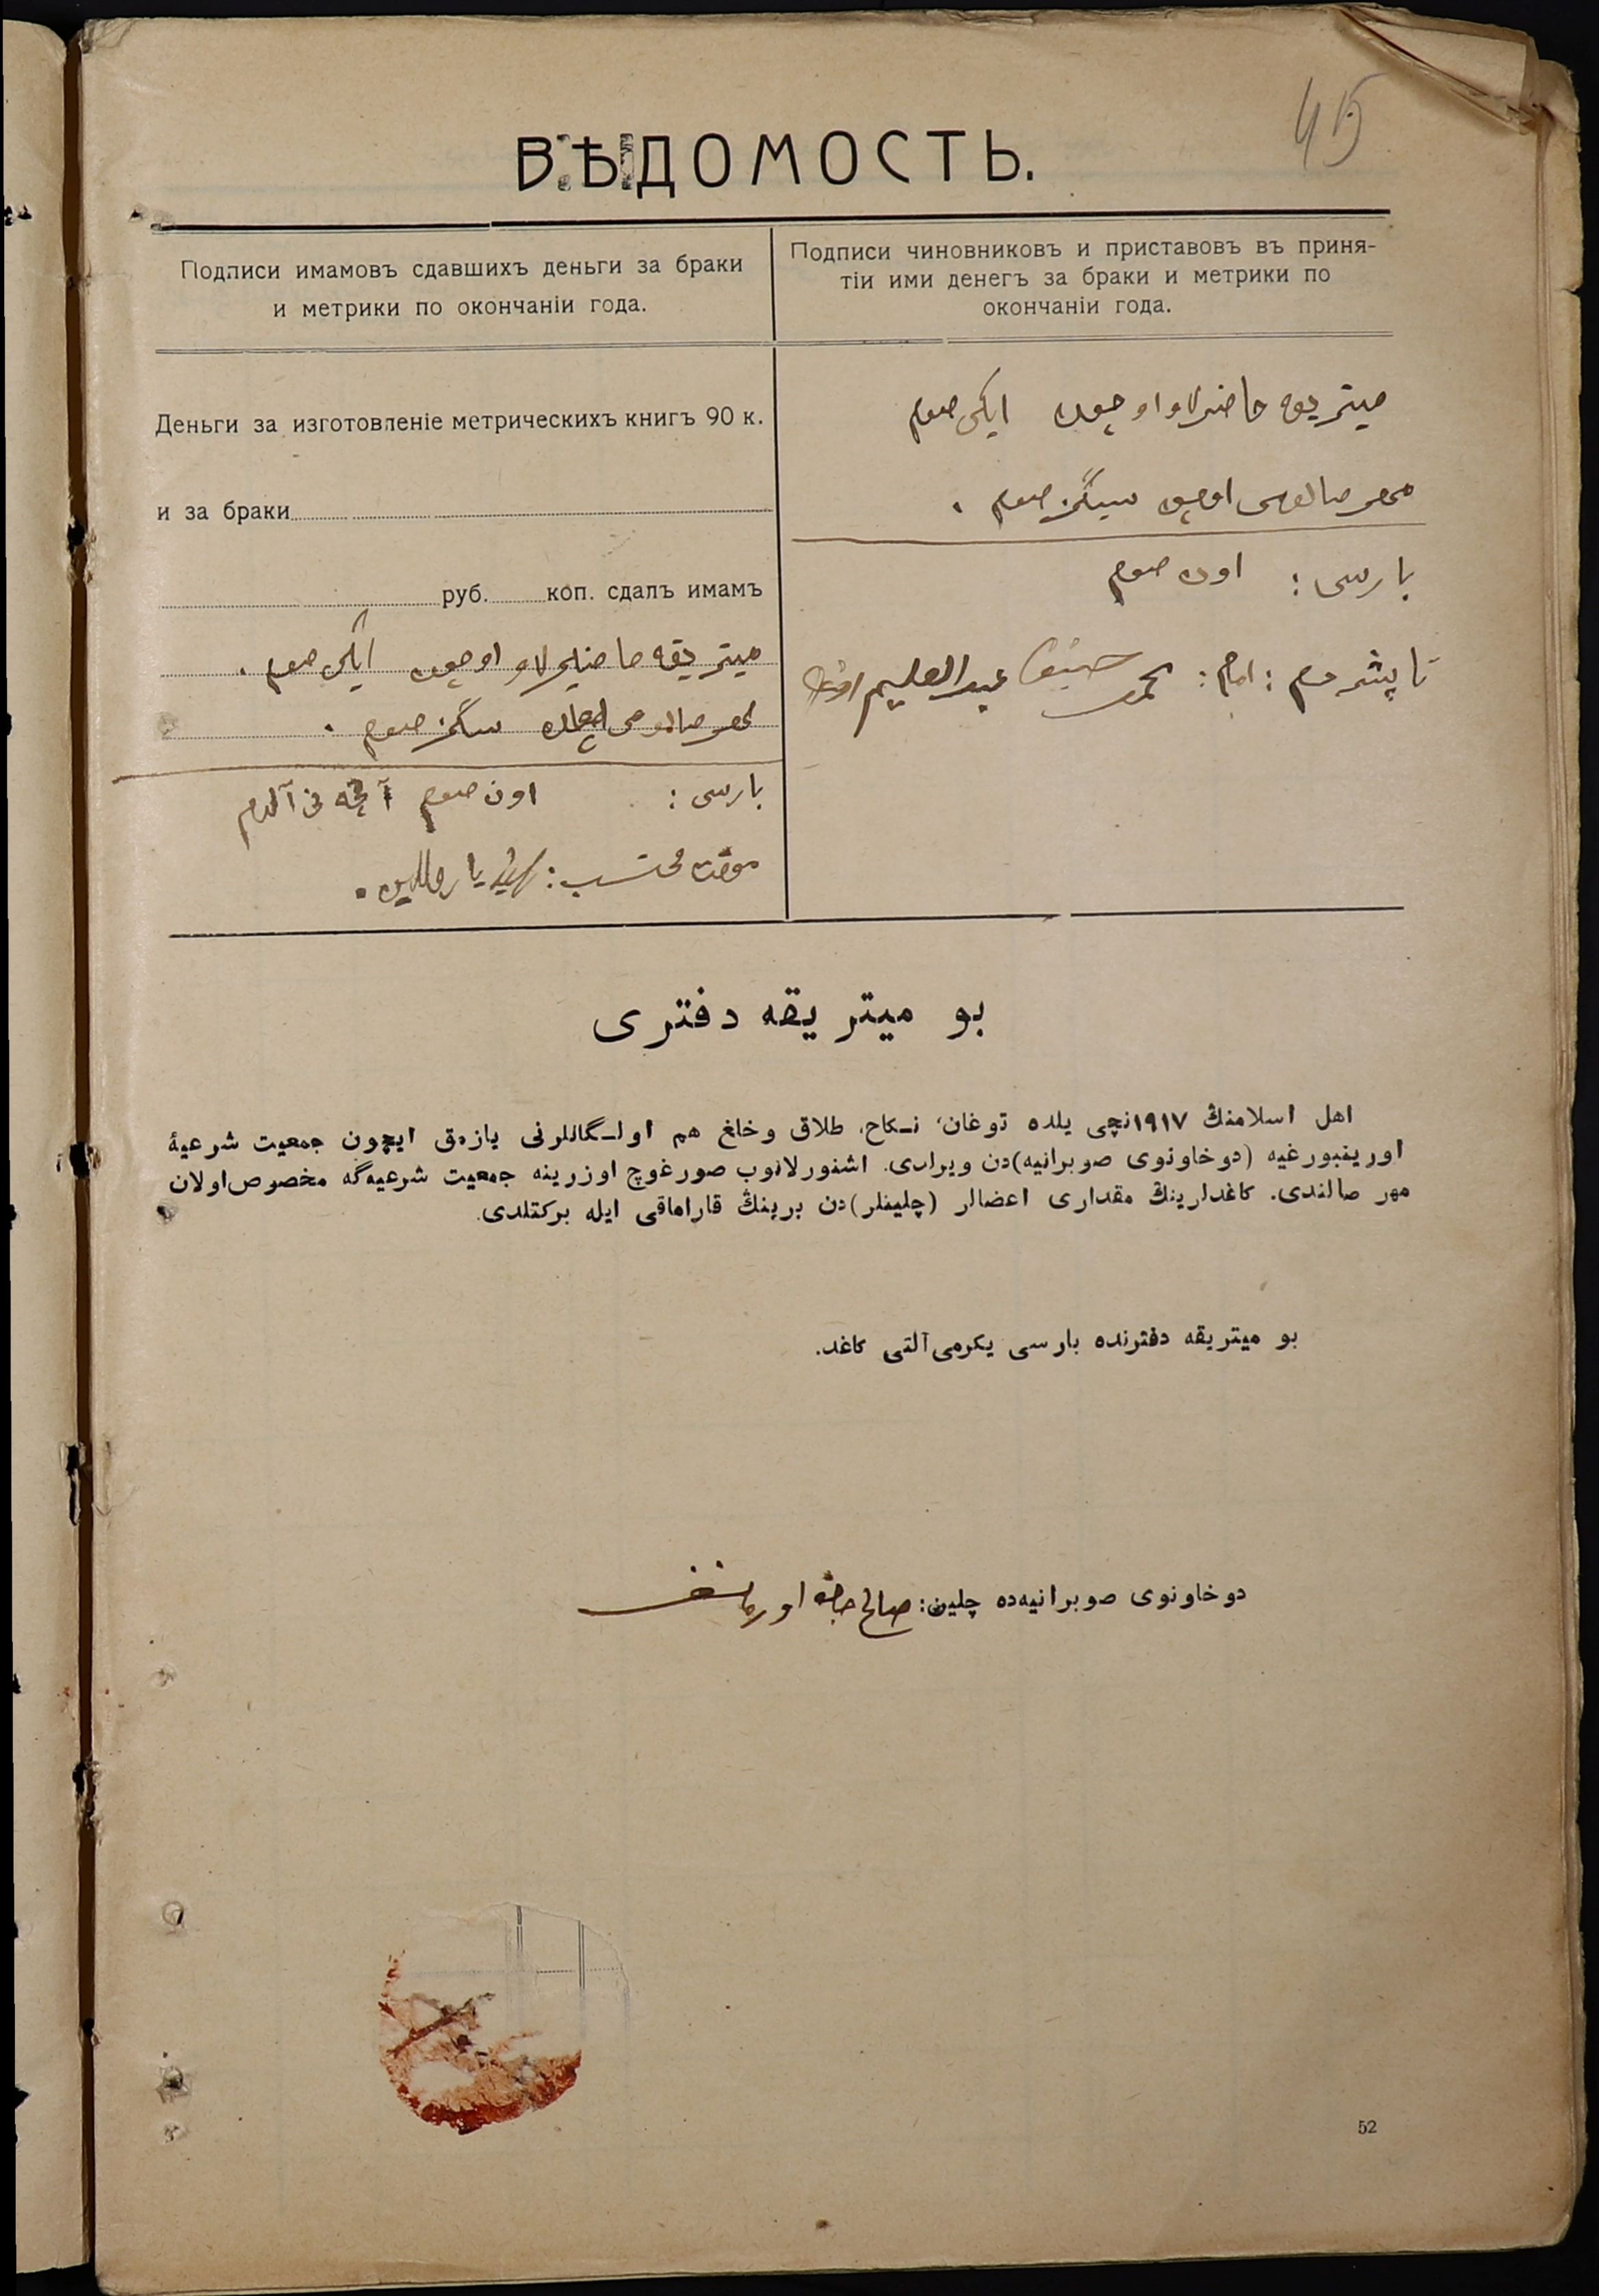 45
ВѢДОМОСТЬ.
Подписи имамовъ сдавшихъ деньги за браки
и метрики по окончаніи года.
Подписи чиновниковъ и приставовъ въ приня-
тіи ими денегъ за браки и метрики по
окончаніи года.
Деньги за изготовленіе метрическихъ книгъ 90 к.
и за браки
руб. коп. сдалъ имамъ
ميتريقه حاضرلاو اوچون ايكی صوم.
سگز صوم.
بارسی: اون صوم آقچه نی آلدم
موقت محتسب:
ميتريقه حاضرلاو اوچون ايكی صوم
اوچون سيگز صوم.
بارسی: اون صوم
تاپشردم: امام: محمد حنيفا عبدالعليم اوف
بو ميتريقه دفتری
اهل اسلامنڭ ۱۹۱۷نچی يلده توغان، نـكاح، طلاق وخلع هم اولـگانلرنی يازمق ايچون جمعيت شرعيۀ
اورينبورغيه (دوخاونوی صوبرانيه)دن ويرلدی. اشنورلانوب صورغوچ اوزرينه جمعيت شرعيه‌گه مخصوص اولان
مهر صالندی. كاغدلرينڭ مقداری اعضالر (چلينلر)دن برينڭ قارامافی ايله بركتلدی.
بو ميتريقه دفترنده بارسی يكرمی آلتی كاغد.
دوخاونوی صوبرانيه‌ده چلين: صالح
52